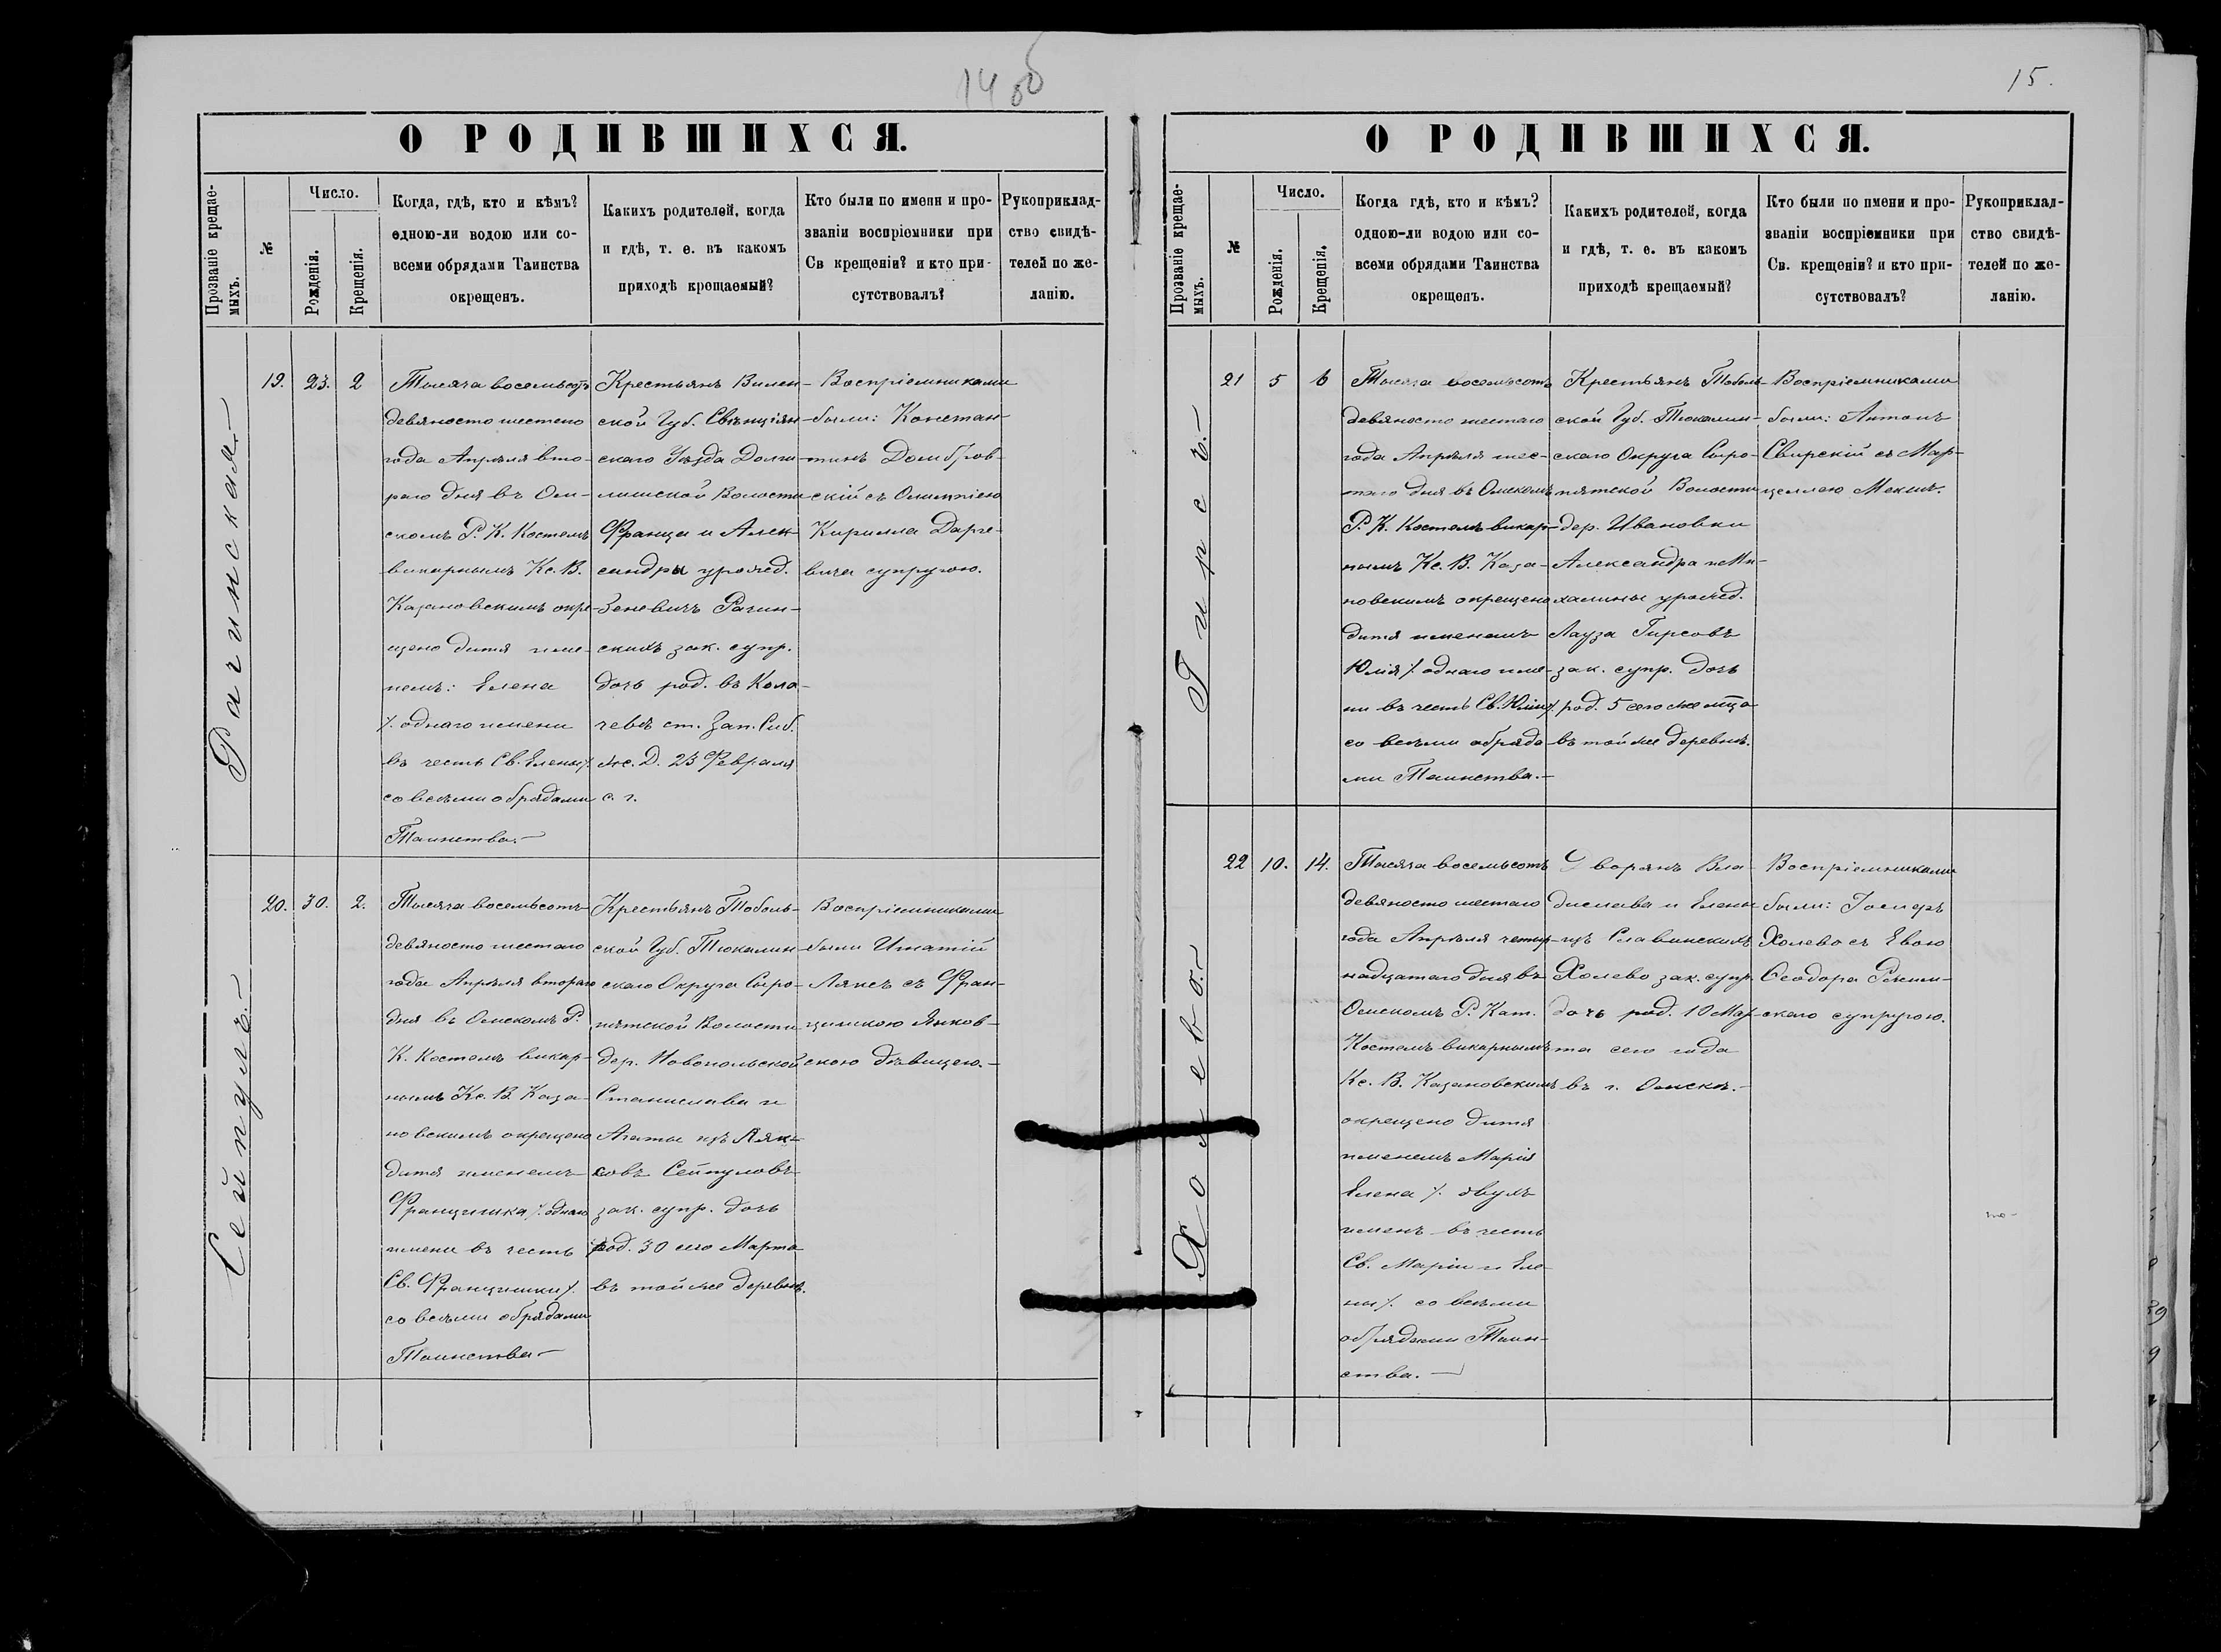 14 об
О РОДИВШИХСЯ.
Прозваніе крещае-
мыхъ.
№
Число.
Рожденія.
Крещенія.
Когда, гдѣ, кто и кѣмъ?
едною-ли водою или со-
всеми обрядами Таинства
окрещенъ.
Какихъ родителей, когда
и гдѣ, т. е. въ какомъ
приходѣ крещаемый?
Кто были по имени и про-
званіи воспріомники при
Св крещеніи? и кто при-
сутствовалъ?
Рукоприклад-
ство свидѣ-
телей по же-
ланію.
Рагинская.—
19.
23.
2
Тысяча восемьсотъ
девяносто шестого
года Апрѣля вто-
раго дня въ Ом-
скомъ Р. К. Костелѣ
викарнымъ Кс. В.
Казановскимъ окре-
щено дитя име-
немъ: Елена
/. однаго имени
въ честь Св. Елены /.
со всѣми обрядами
Таинства.—
Крестьянъ Вилен-
ской Губ. Свѣнціян-
скаго Уѣзда Долги-
лишской Волости
Франца и Алек-
сандры урожд.
Зеневичъ Рагин-
скихъ зак. супр.
дочь род. въ Кола-
чевѣ ст. Зап. Сиб.
Ж. Д. 23 Февраля
с. г.
Воспріемниками
были: Констан-
тинъ Домбров-
скій съ Олимпіею
Кирилла Дарге-
вича супругою.
Сейпулъ.—
20.
30.
2.
Тысяча восемьсотъ
девяносто шестаго
года Апрѣля втораго
дня въ Омскомъ Р.
К. Костелѣ викар-
нымъ Кс. В. Каза-
новскимъ окрещено
дитя именемъ
Францишка /. однаго
имени въ честь
Св. Францишки /.
со всѣми обрядами
Таинства—
Крестьянъ Тоболь-
ской Губ. Тюкалин-
скаго Округа Сыро-
пятской Волости
дер. Новопольской
Станислава и
Агаты изъ Ляк-
совъ Сейпуловъ
зак. супр. дочь
род. 30 сего Марта
въ той же деревнѣ.
Воспріемниками
были Игнатій
Ляксъ съ Фран-
цишкою Янков-
скою дѣвицею.—
15.
О РОДИВШИХСЯ.
Прозваніе крещае-
мыхъ.
№
Число.
Рожденія.
Крещенія.
Когда гдѣ, кто и кѣмъ?
одною-ли водою или со-
всеми обрядами Таинства
окрещенъ.
Какихъ родителей, когда
и гдѣ, т. е. въ какомъ
приходѣ крещаемый?
Кто были по имени и про-
званіи воспріемники при
Св. крещеніи? и кто при-
сутствовалъ?
Рукоприклад-
ство свидѣ-
телей по же-
ланію.
Гирсъ.—
21
5
6
Тысяча восемьсотъ
девяносто шестаго
года Апрѣля шес-
таго дня въ Омскомъ
Р. К. Костелѣ викар-
нымъ Кс. В. Каза-
новскимъ окрещено
дитя именемъ
Юлія /. однаго име-
ни въ честь Св. Юліи /.
со всѣми обряда-
ми Таинства.—
Крестьянъ Тоболь-
ской Губ. Тюкалин-
скаго Округа Сыро-
пятской Волости
дер. Ивановки
Александра и Ми-
халины урожд.
Лауза Гирсовъ
зак. супр. дочь
род. 5 сего же мца
въ той же деревнѣ.
Воспріемниками
были: Антонъ
Свирскій съ Мар-
целлею Мекшъ.
Холево.—
22
10.
14.
Тысяча восемьсотъ
девяносто шестаго
года Апрѣля четыр-
надцатаго дня въ
Омскомъ Р. Кат.
Костелѣ викарнымъ
Кс. В. Казановскимъ
окрещено дитя
именемъ Марія
Елена /. двухъ
именъ въ честь
Св. Маріи и Еле-
ны /. со всѣми
обрядами Таин-
ства.—
Дворянъ Вла-
дислава и Елены
изъ Славинскихъ
Холево зак. супр.
дочь род. 10 Мар-
та сего года
въ г. Омскѣ.—
Воспріемниками
были: Іосифъ
Холево съ Евою
Ѳеодора
скаго супругою.